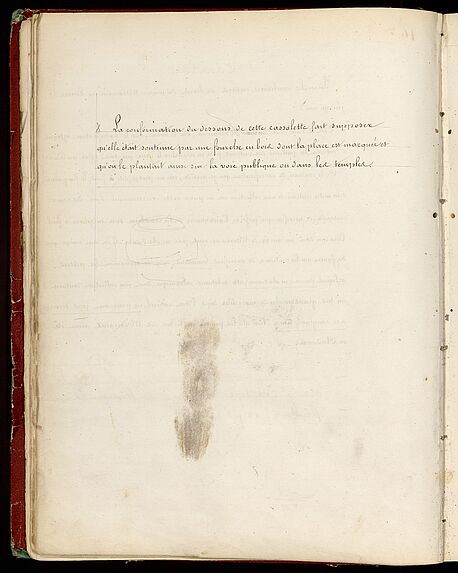 X La conformation du dessous de cette cassolette fait supposer
qu'elle était soutenue par une fourche en bois dont la place est marquée et
qu'on le plantait ainsi sur la voie publique ou dans les temples.